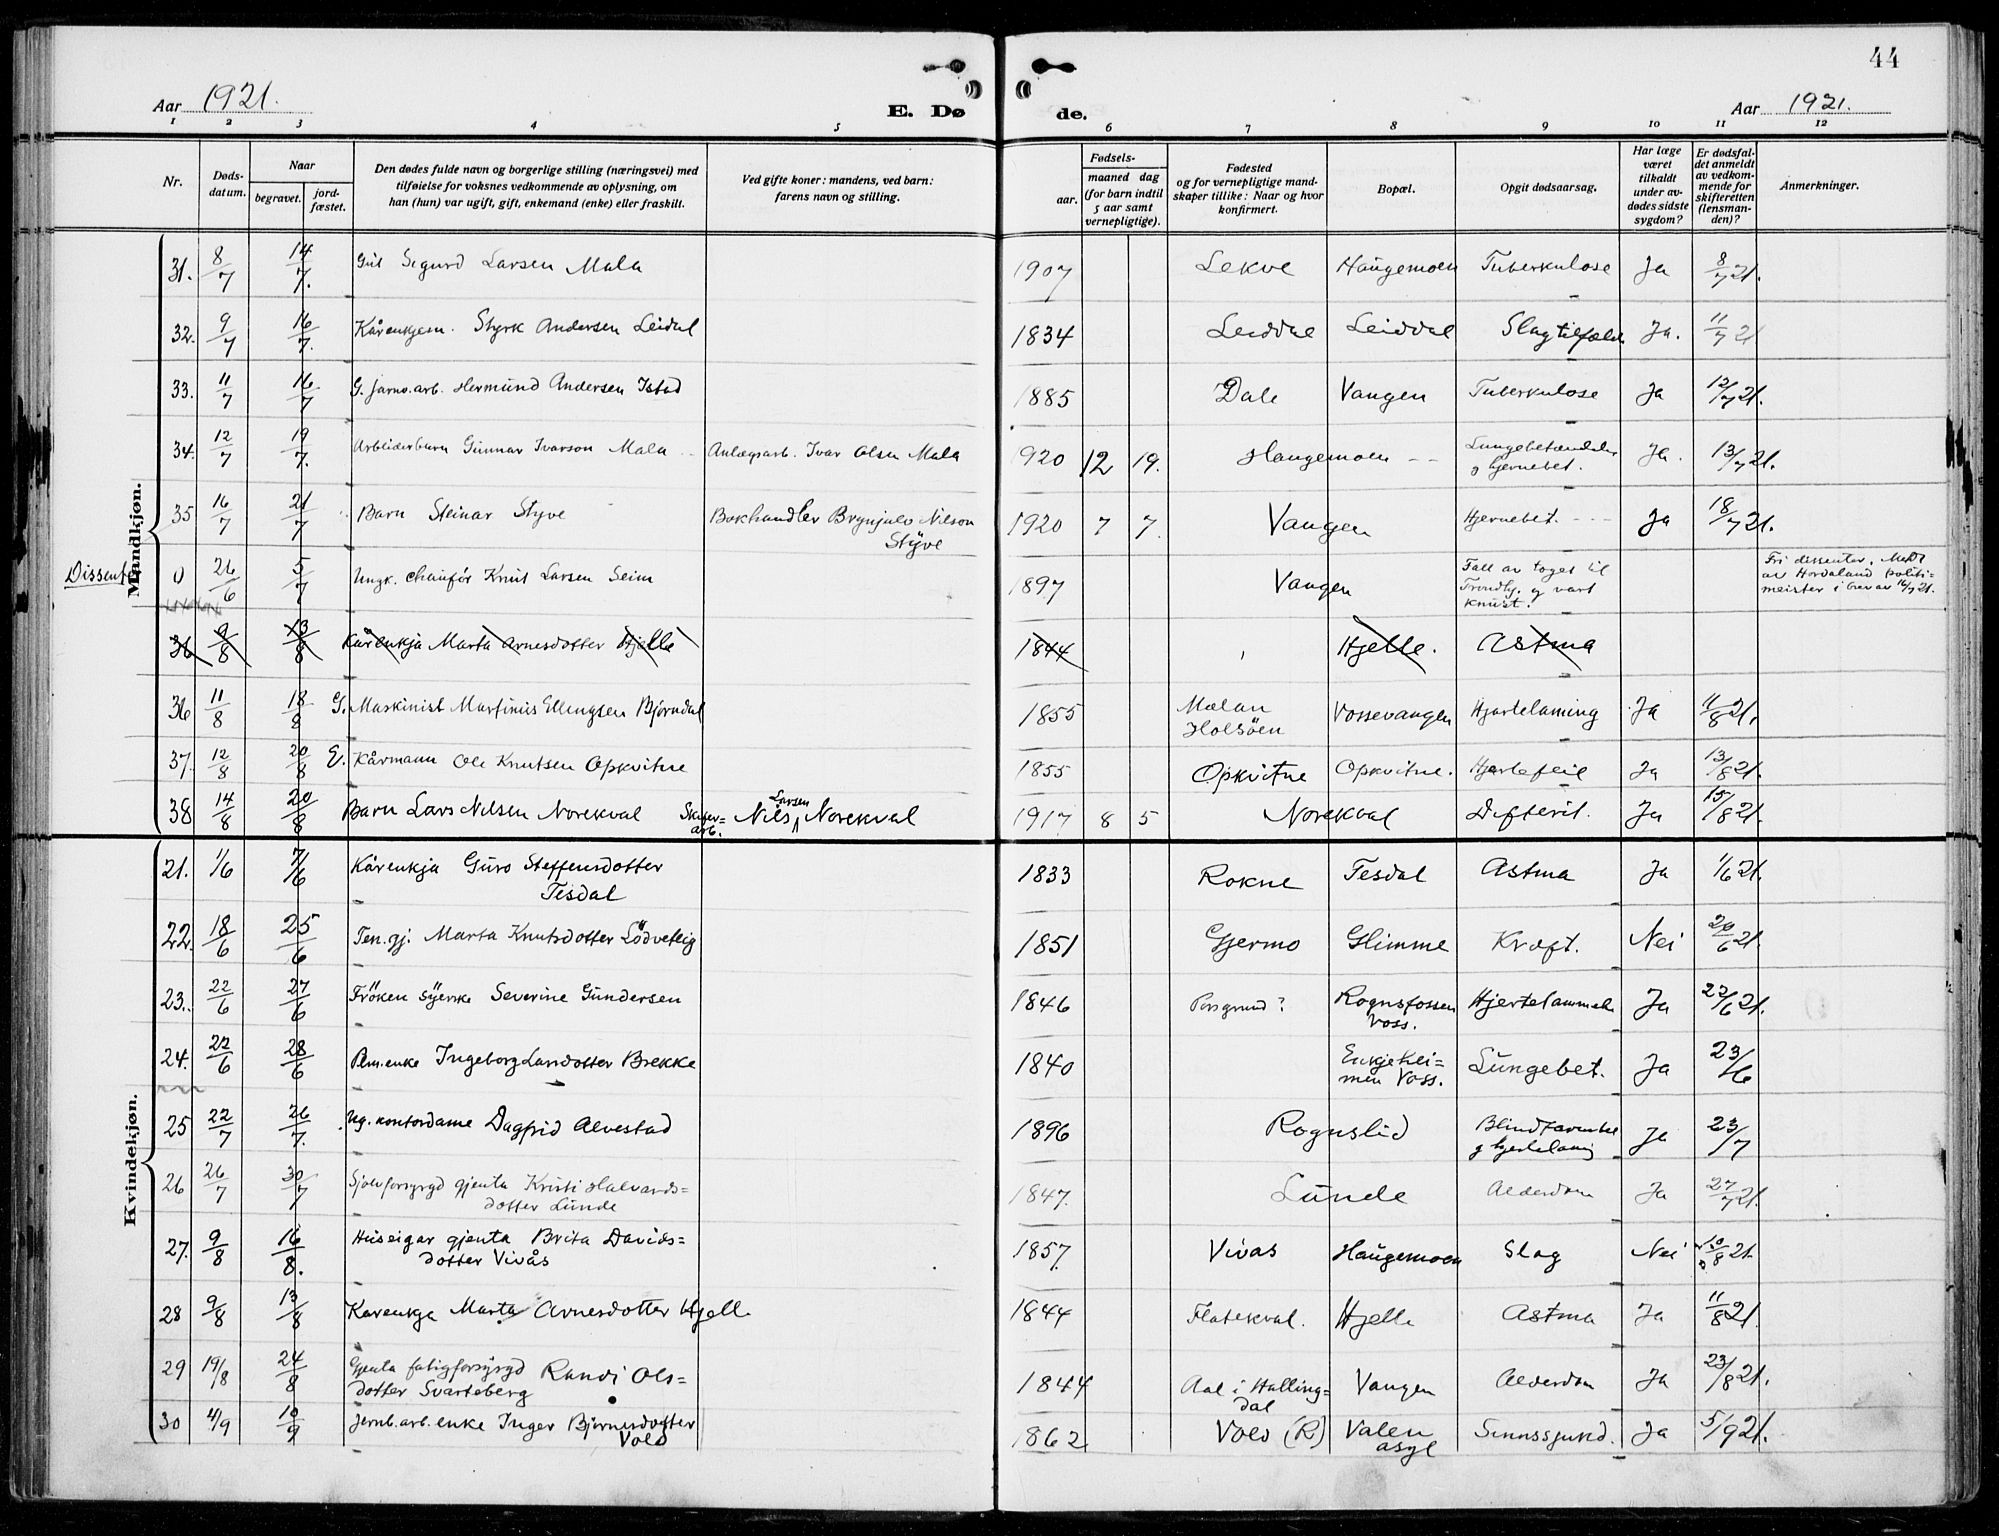 44
Aar 1921.
E. Dø
de.
Aar 1921.
1 2 3 4 5 6 7 8 9 10 11 12
Nr.
Døds-
datum.
Naar
begravet.
jord-
fæstet.
Den dødes fulde navn og borgerlige stilling (næringsvei) med
tilføielse for voksnes vedkommende av oplysning, om
han (hun) var ugift, gift, enkemand (enke) eller fraskilt.
Ved gifte koner: mandens, ved barn:
farens navn og stilling.
Fødsels-
aar.
maaned dag
(for barn indtil
5 aar samt
vernepligtige).
Fødested
og for vernepligtige mand-
skaper tillike: Naar og hvor
konfirmert.
Bopæl.
Opgit dødsaarsag.
Har læge
været
tilkaldt
under av-
dødes sidste
sygdom?
Er dødsfal-
det anmeldt
av vedkom-
mende for
skifteretten
(lensman-
den)?
Anmerkninger.
Mandkjøn.
31. 8/7 14/7. Gut Sigurd Larsen Mala 1907 Lekve Haugemoen Tuberkulose Ja 8/7 21.
32. 9/7 16/7. Kårenkjem. Styrk Andersen Leidal 1834 Leiddal Leiddal Slagtilfælde Ja. 11/7 21
33. 11/7 16/7 G. jarnv.arb. Hermund Andersen Istad 1885 Dale Vangen Tuberkulose Ja 12/7 21.
34. 12/7 19/7. Arbeiderbarn Gunnar Ivarson Mala Anlægsarb. Ivar Olsen Mala 1920 12 19. Haugemoen Lungebetændelse
og hjernebet. Ja. 13/7 21.
35 16/7 21/7 Barn Steinar Styve Bokhandler Brynjulv Nilson
Styve 1920 7 7. Vangen Hjernebet. Ja 18/7 21.
Dissenter 0 26/6 5/7 Ungk. chaufør Knut Larsen Seim 1897 Vangen Fall av toget til
Trondhj. og vart
knust. Fri dissenter. Meldt
av Hordaland politi-
meister i brev av 16/7 21.
36 9/8 13/8 Kårenkja Marta Arnesdotter Hjelle 1844 Hjelle. Astma
36 11/8 18/8 G. Maskinist Martinius Ellingsen Bjørndal 1855 Malan
Holsöen Vossevangen Hjartelaming Ja 11/8 21.
37. 12/8 20/8 E. Kårmann Ole Knutsen Opkvitne 1855 Opkvitne Opkvitne. Hjertefeil Ja 13/8 21.
38 14/8 20/8 Barn Lars Nilsen Norekval Skifer-
arb. Nils Larsen Norekval 1917 8 5 Norekval Difterit. Ja 15/8 21.
Kvindekjøn.
21. 1/6 7/6 Kårenkja Guro Steffensdotter
Tesdal 1833 Rokne Tesdal Astma Ja 1/6 21.
22. 18/6 25/6 Ten.gj. Marta Knutsdotter Lödvetlig 1851 Gjermo Glimme Kræft. Nei 20/6 21.
23. 22/6 27/6 Fröken Syerske Severine Gundersen 1846 Porsgrund? Rognsfossen
Voss. Hjertelammelse Ja 22/6 21.
24. 22/6 28/6 Plm.enke Ingeborg Larsdotter Brekke 1840 Enkjehei-
men Voss. Lungebet. Ja 23/6
25 22/7 26/7. Ug. kontordame Dagfrid Alvestad 1896 Rognslid Blindtarmbet.
og hjertelaming Ja 23/7
26 26/7 30/7 Sjølvforsyrgd gjenta Kristi Halvards-
dotter Lunde 1847. Lunde Alderdom Ja 27/7 21.
27. 9/8 16/8. Huseigar gjenta Brita Davids-
dotter Vivås 1857. Vivas Haugemoen Slag Nei 10/8 21.
28 9/8 13/8 Kårenkja Marta Arnesdotter Hjelle 1844 Flatekval. Hjelle Astma Ja 11/8 21.
29 19/8 24/8 Gjenta fatigforsyrgd Randi Ols-
dotter Svarteberg 1844 Aal i Halling-
dal Vangen Alderdom Ja 23/8 21.
30 4/9 10/9 Jernb.arb. enke Inger Bjørnesdotter
Vold 1862 Vold (R) Valen
asyl Sinnssjukd. Ja 5/9 21.